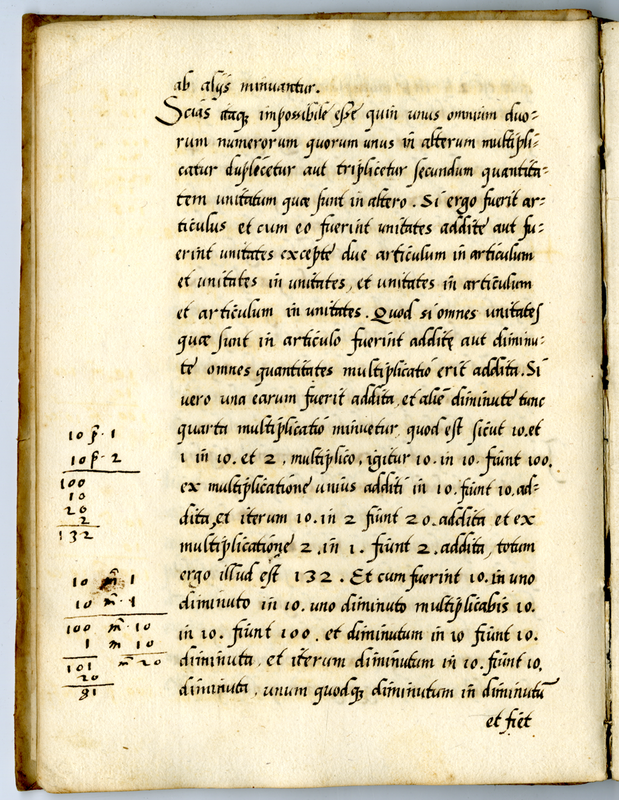 ab alijs minuantur.
Scias itaqꝫ impossibile esse quin unus omnium duo-
rum numerorum quorum unus in alterum multipli-
catur duplicetur aut triplicetur secundum quantita-
tem unitatum quæ sunt in altero. Si ergo fuerit ar-
ticulus et cum eo fuerint unitates addite aut fu-
erint unitates excepte due articulum in articulum
et unitates in unitates, et unitates in articulum
et articulum in unitates. Quod si omnes unitates
quæ sunt in articulo fuerint additę aut diminu-
te omnes quantitates multiplicatio erit addita. Si
uero una earum fuerit addita, et alie diminute tunc
quarta multiplicatio minuetur, quod est sicut 10. et
1 in 10. et 2, multiplico, igitur 10. in 10. fiunt 100.
ex multiplicatione unius additi in 10. fiunt 10. ad-
dita, et iterum 10. in 2 fiunt 20. addita et ex
multiplicatione 2. in 1. fiunt 2. addita, totum
ergo illud est 132. Et cum fuerint 10. in uno
diminuto in 10. uno diminuto multiplicabis 10.
in 10. fiunt 100. et diminutum in 10 fiunt 10.
diminuta, et iterum diminutum in 10. fiunt 10.
diminuta, unum quodqꝫ diminutum in diminutū
et fiet
10 p̃. 1
10 p̃. 2
100
10
20
2
132
10 m̃ 1
10 m̃. 1
100 m̃. 10
1 m 10
101 m̃ 20
20
81